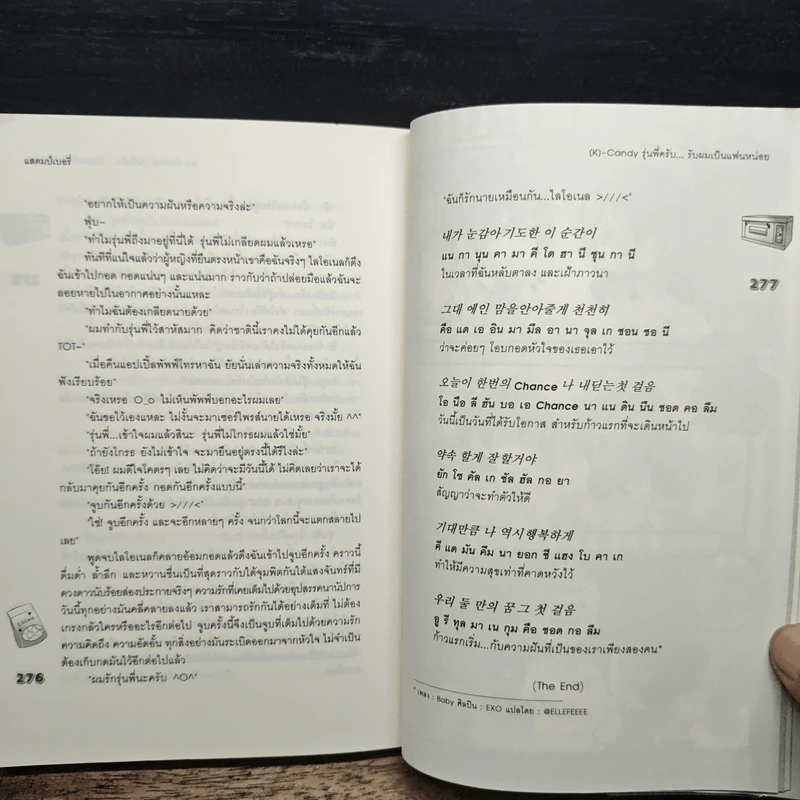 แสตมป์เบอรี่
"อยากให้เป็นความฝันหรือความจริงล่ะ"
ฟุ่บ~
"ทำไมรุ่นพี่ถึงมาอยู่ที่นี่ได้ รุ่นพี่ไม่เกลียดผมแล้วเหรอ"
ทันทีที่แน่ใจแล้วว่าผู้หญิงที่ยืนตรงหน้าเขาคือฉันจริงๆ ไลโอเนลก็ดึง
ฉันเข้าไปกอด กอดแน่นๆ และแน่นมาก ราวกับว่าถ้าปล่อยมือแล้วฉันจะ
ลอยหายไปในอากาศอย่างนั้นแหละ
"ทำไมฉันต้องเกลียดนายด้วย"
"ผมทำกับรุ่นพี่ไว้สาหัสมาก คิดว่าชาตินี้เราคงไม่ได้คุยกันอีกแล้ว
TOT~"
"เมื่อคืนแอปเปิ้ลพัฟฟ์โทรหาฉัน ยัยนั่นเล่าความจริงทั้งหมดให้ฉัน
ฟังเรียบร้อย"
"จริงเหรอ O_o ไม่เห็นพัฟฟ์บอกอะไรผมเลย"
"ฉันขอไว้เองแหละ ไม่งั้นจะมาเซอร์ไพรส์นายได้เหรอ จริงมั้ย ^^"
"รุ่นพี่...เข้าใจผมแล้วสินะ รุ่นพี่ไม่โกรธผมแล้วใช่มั้ย"
"ถ้ายังโกรธ ยังไม่เข้าใจ จะมายืนอยู่ตรงนี้ได้รึไงล่ะ"
"โอ๊ย! ผมดีใจโคตรๆ เลย ไม่คิดว่าจะมีวันนี้ได้ ไม่คิดเลยว่าเราจะได้
กลับมาคุยกันอีกครั้ง กอดกันอีกครั้งแบบนี้"
"จูบกันอีกครั้งด้วย >///<"
"ใช่! จูบอีกครั้ง และจะอีกหลายๆ ครั้ง จนกว่าโลกนี้จะแตกสลายไป
เลย"
พูดจบไลโอเนลก็คลายอ้อมกอดแล้วดึงฉันเข้าไปจูบอีกครั้ง คราวนี้
ดื่มด่ำ ล้ำลึก และหวานชื่นเป็นที่สุดราวกับได้จุมพิตกันใต้แสงจันทร์ที่มี
ดวงดาวนับร้อยส่องประกายจริงๆ ความรักที่เคยเต็มไปด้วยอุปสรรคนานัปการ
วันนี้ทุกอย่างมันคลี่คลายลงแล้ว เราสามารถรักกันได้อย่างเต็มที่ ไม่ต้อง
เกรงกลัวใครหรืออะไรอีกต่อไป จูบครั้งนี้จึงเป็นจูบที่เต็มไปด้วยความรัก
ความคิดถึง ความอัดอั้น ทุกสิ่งอย่างมันระเบิดออกมาจากหัวใจ ไม่จำเป็น
ต้องเก็บกดมันไว้อีกต่อไปแล้ว
"ผมรักรุ่นพี่นะครับ ^O^"
276
(K)-Candy รุ่นพี่ครับ... รับผมเป็นแฟนหน่อย
"ฉันก็รักนายเหมือนกัน...ไลโอเนล >///<"
내가 눈감아기도한 이 순간이
แน กา นุน คา มา คี โด ฮา นี ซุน กา นี
ในเวลาที่ฉันหลับตาลง และเฝ้าภาวนา
그대 에인 맘을안아줄게 천천히
คือ แด เอ อิน มา มึล อา นา จุล เก ชอน ชอ นี
ว่าจะค่อยๆ โอบกอดหัวใจของเธอเอาไว้
오늘이 한번의 Chance 나 내딛는첫 걸음
โอ นือ ลี ฮัน บอ เอ Chance นา แน ดิน นึน ชอต คอ ลึม
วันนี้เป็นวันที่ได้รับโอกาส สำหรับก้าวแรกที่จะเดินหน้าไป
약속 할게 잘할거야
ยัก โซ คัล เก ชัล ฮัล กอ ยา
สัญญาว่าจะทำตัวให้ดี
기대만큼 나 역시행복하게
คี แด มัน คึม นา ยอก ชี แฮง โบ คา เก
ทำให้มีความสุขเท่าที่คาดหวังไว้
우리 둘 만의 꿈 그 첫 걸음
อู รี ทุล มา เน กุม คือ ชอต กอ ลึม
ก้าวแรกเริ่ม...กับความฝันที่เป็นของเราเพียงสองคน*
(The End)
* เพลง : Baby ศิลปิน : EXO แปลโดย : @ELLEFEEEE
277